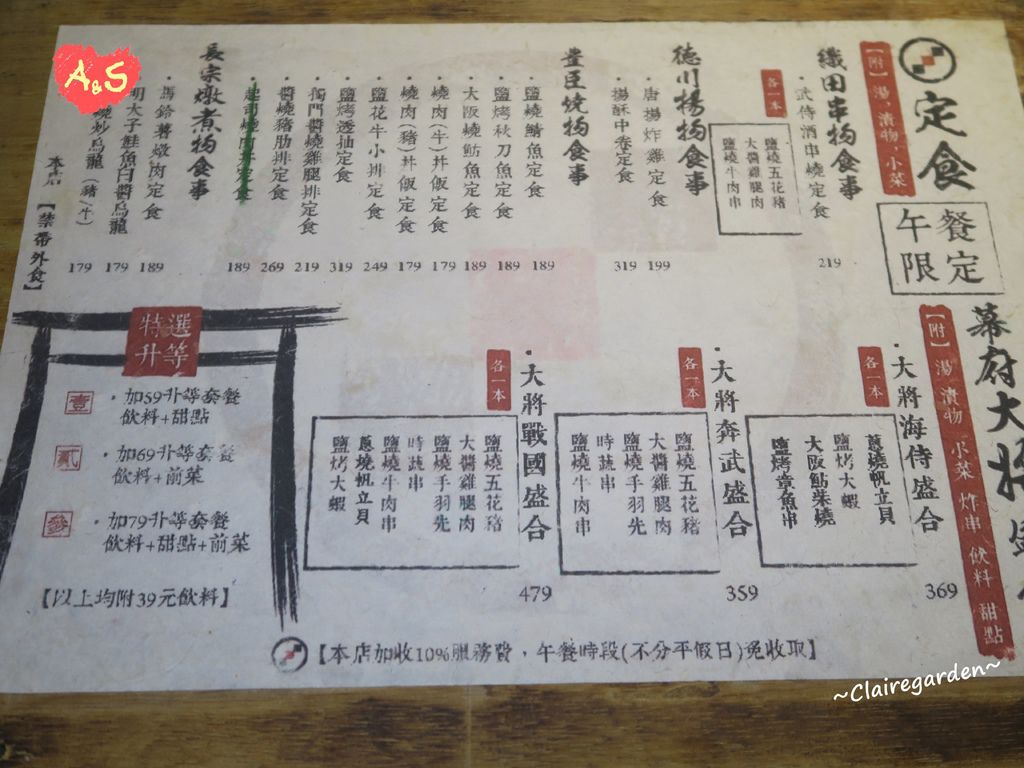 定食
午餐限定
【附】湯、漬物、小菜
織田串物食事
·武侍酒串燒定食
219
各一本
鹽燒五花豬
大醬雞腿肉
鹽燒牛肉串
德川揚物食事
·唐揚炸雞定食
199
·揚酥中卷定食
319
豊臣燒物食事
·鹽燒鯖魚定食
189
·鹽烤秋刀魚定食
189
·大阪燒魴魚定食
189
·燒肉(牛)丼飯定食
179
·燒肉(豬)丼飯定食
179
·鹽花牛小排定食
249
·鹽烤透抽定食
319
·獨門醬燒雞腿排定食
219
·醬燒豬肋排定食
269
·起司燒肉丼定食
189
長宗燉煮物食事
·馬鈴薯燉肉定食
189
明太子鮭魚白醬烏龍
179
燒炒烏龍(豬/牛)
179
本店【禁帶外食】
幕府大將盛
【附】湯 漬物 小菜 炸串 飲料 甜點
·大將海侍盛合
369
各一本
蔥燒帆立貝
鹽烤大蝦
大阪魴朱燒
鹽烤章魚串
·大將奔武盛合
359
各一本
鹽燒五花豬
大醬雞腿肉
鹽燒手羽先
時蔬串
鹽燒牛肉串
·大將戰國盛合
479
各一本
鹽燒五花豬
大醬雞腿肉
鹽燒手羽先
時蔬串
鹽燒牛肉串
蔥燒帆立貝
鹽烤大蝦
特選升等
壹
·加59升等套餐
飲料+甜點
貳
·加69升等套餐
飲料+前菜
參
·加79升等套餐
飲料+甜點+前菜
【以上均附39元飲料】
【本店加收10%服務費,午餐時段(不分平假日)免收取】
A&S
~Clairegarden~